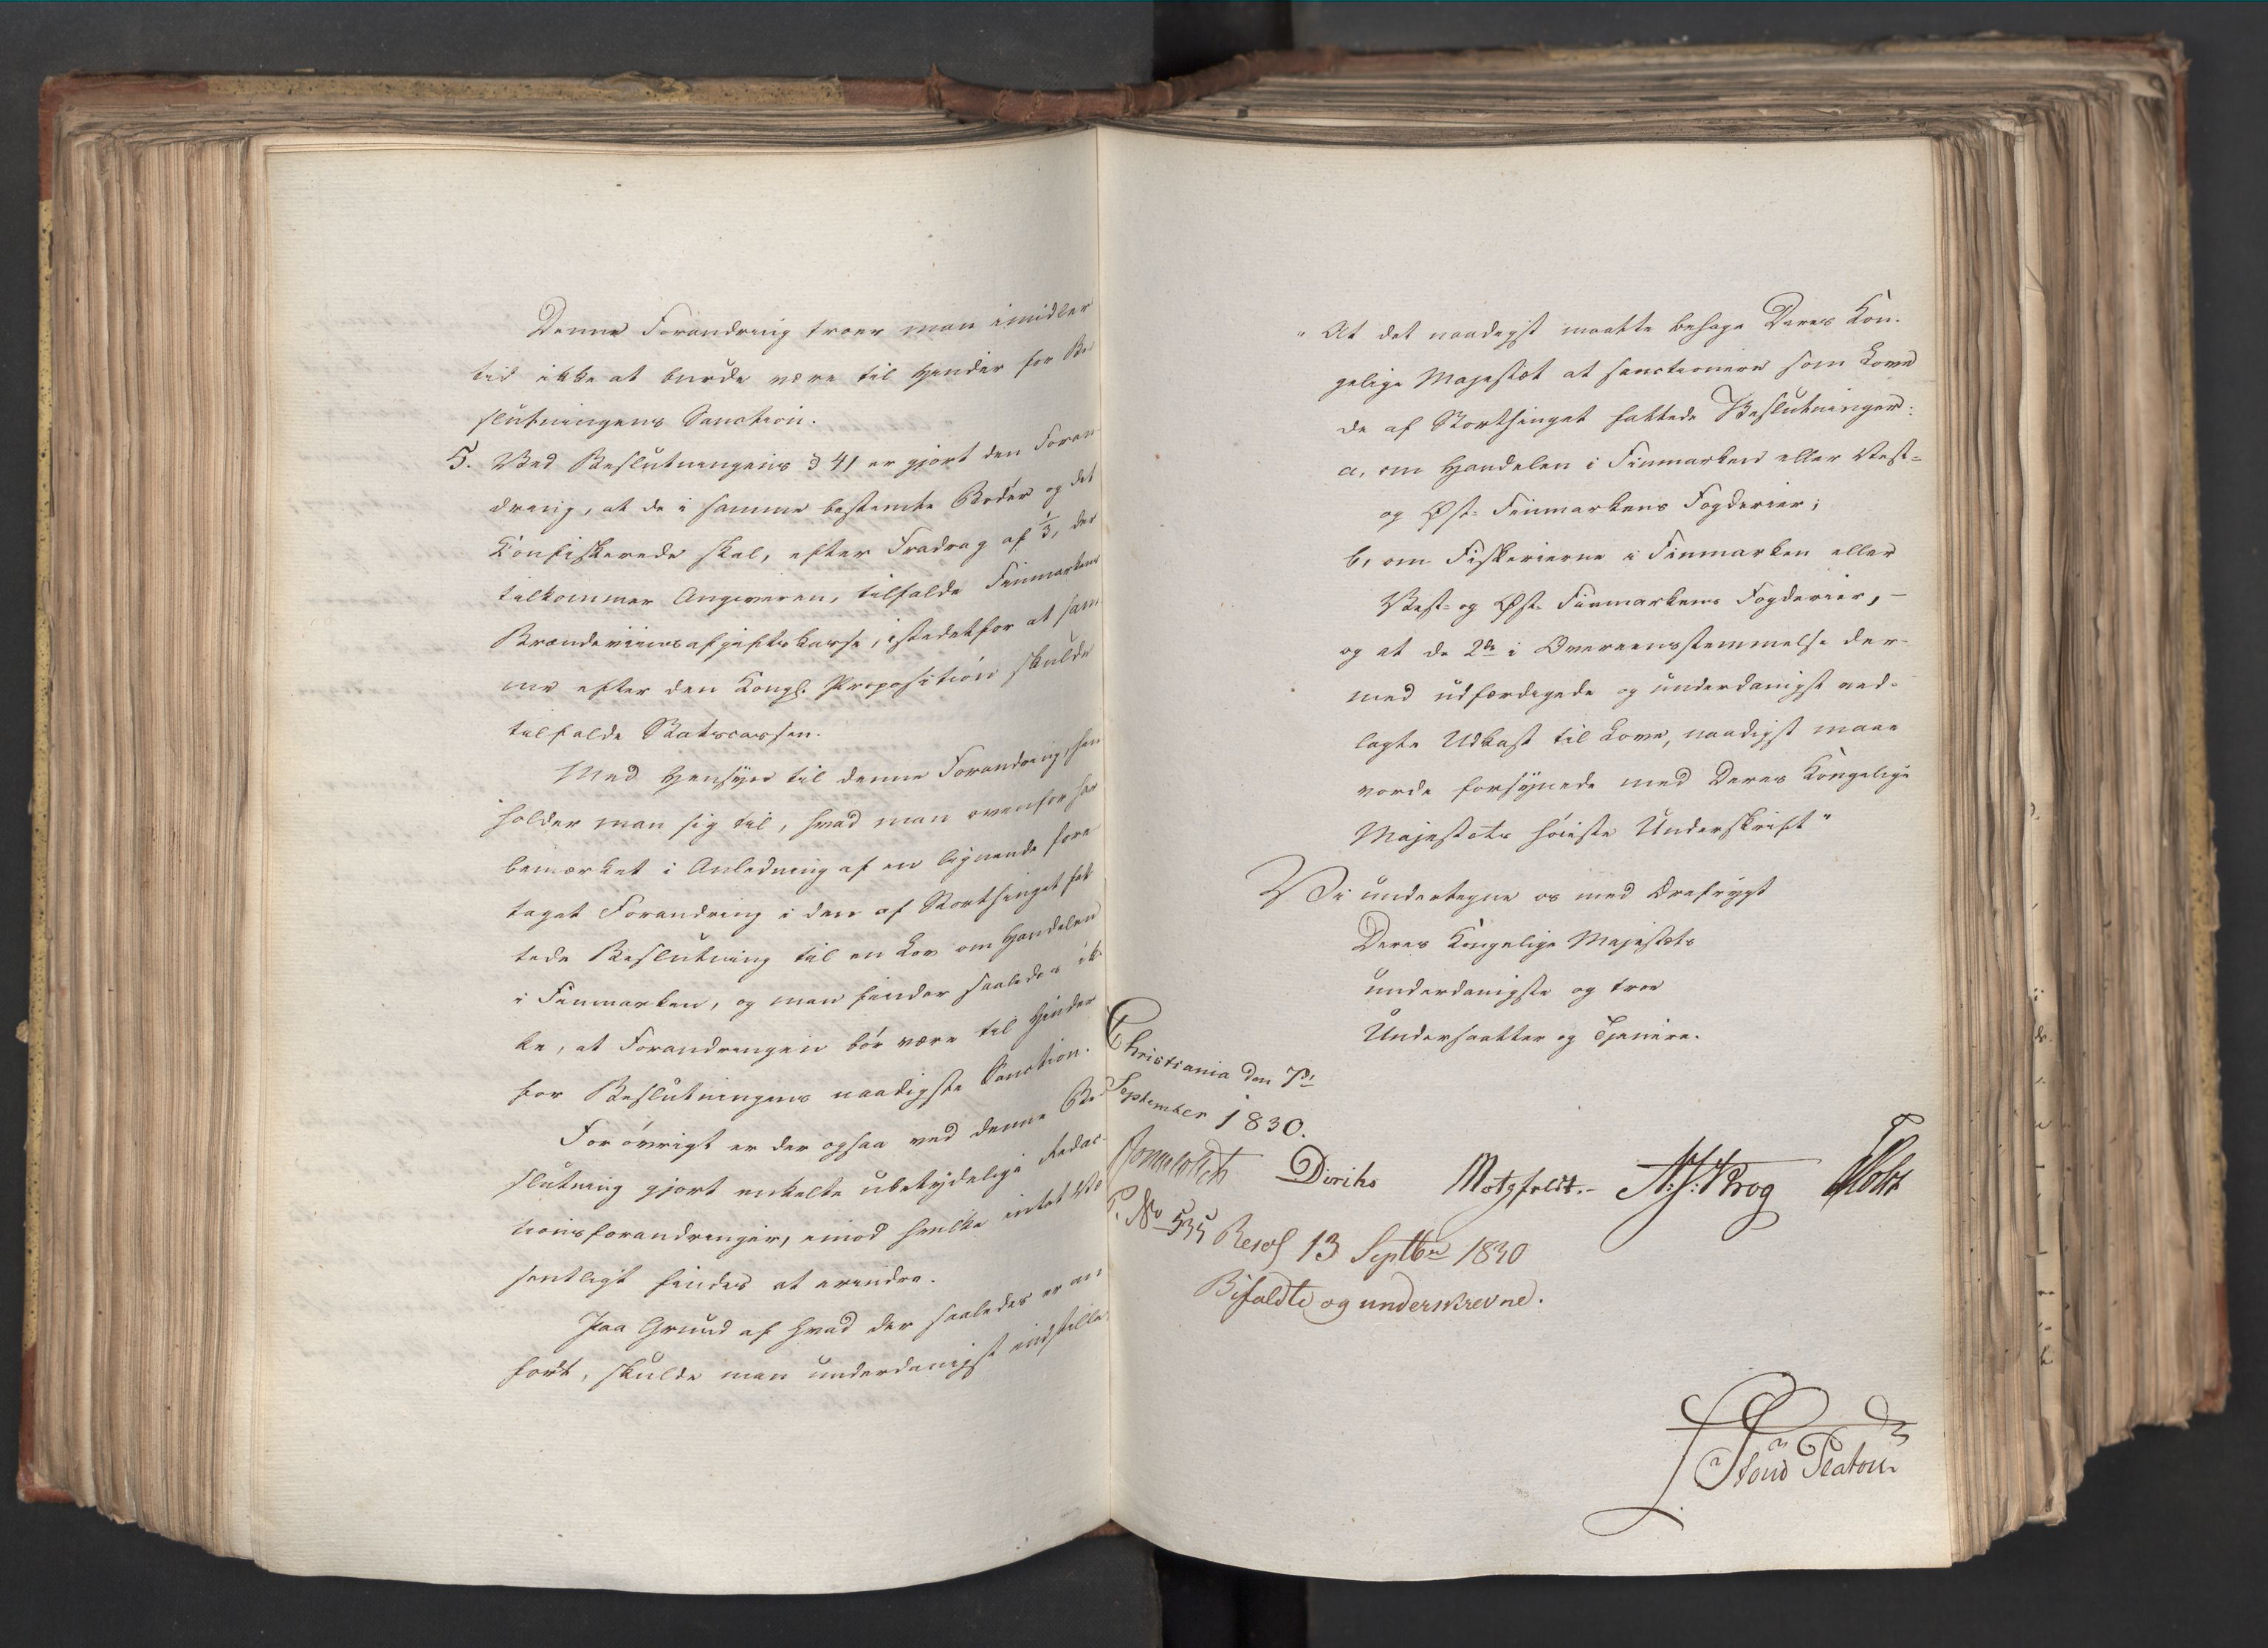 Denne Forandring troer man imidler
tid ikke at burde være til Hinder for Be
slutningens Sanction.
5. Ved Beslutningens § 41 er gjort den Foran
dring, at de i samme bestemte Bøder og det
Konfiskerede skal, efter Fradrag af 1/3, der
tilkommer Angiveren, tilfalde Finmarkens
Brændeviinsafgiftskasse, istedetfor at sam
me efter den Kongl. Proposition skulde
tilfalde Statscassen.
Med Hensyn til denne Forandring, hen
holder man sig til, hvad man ovenfor har
bemærket i Anledning af en lignende fore
taget Forandring i den af Storthinget fat
tede Beslutning til en Lov om Handelen
i Finmarken, og man finder saaledes ik
ke, at Forandringen bør være til Hinder
for Beslutningens naadigste Sanction.
For øvrigt er der ogsaa ved denne Be
slutning gjort enkelte ubetydelige Redac-
tionsforandringer, imod hvilke intet Væ
sentligt findes at erindre.
Paa Grund af hvad der saaledes er an
ført, skulde man underdanigst indstille:
"At det naadigst maatte behage Deres Kon-
gelige Majestæt at sanctionere som Love
de af Storthinget fattede Beslutninger:
a, om Handelen i Finmarken eller Vest-
og Øst-Finmarkens Fogderier;
b, om Fiskerierne i Finmarken eller
Vest- og Øst-Finmarkens Fogderier, -
og at de 2de i Overeensstemmelse der-
med udfærdigede og underdanigst ved-
lagte Udkast til Love, naadigst maae
vorde forsynede med Deres Kongelige
Majestæts høieste Underskrift"
Vi undertegne os med Ærefrygt
Deres Kongelige Majestæts
underdanigste og troe
Undersaatter og Tjenere.
Christiania den 7de
September 1830.
Diriks Motzfeldt.- Krog
P. No 535 Resol 13 Septbr 1830
Bifaldte og underskrevne.